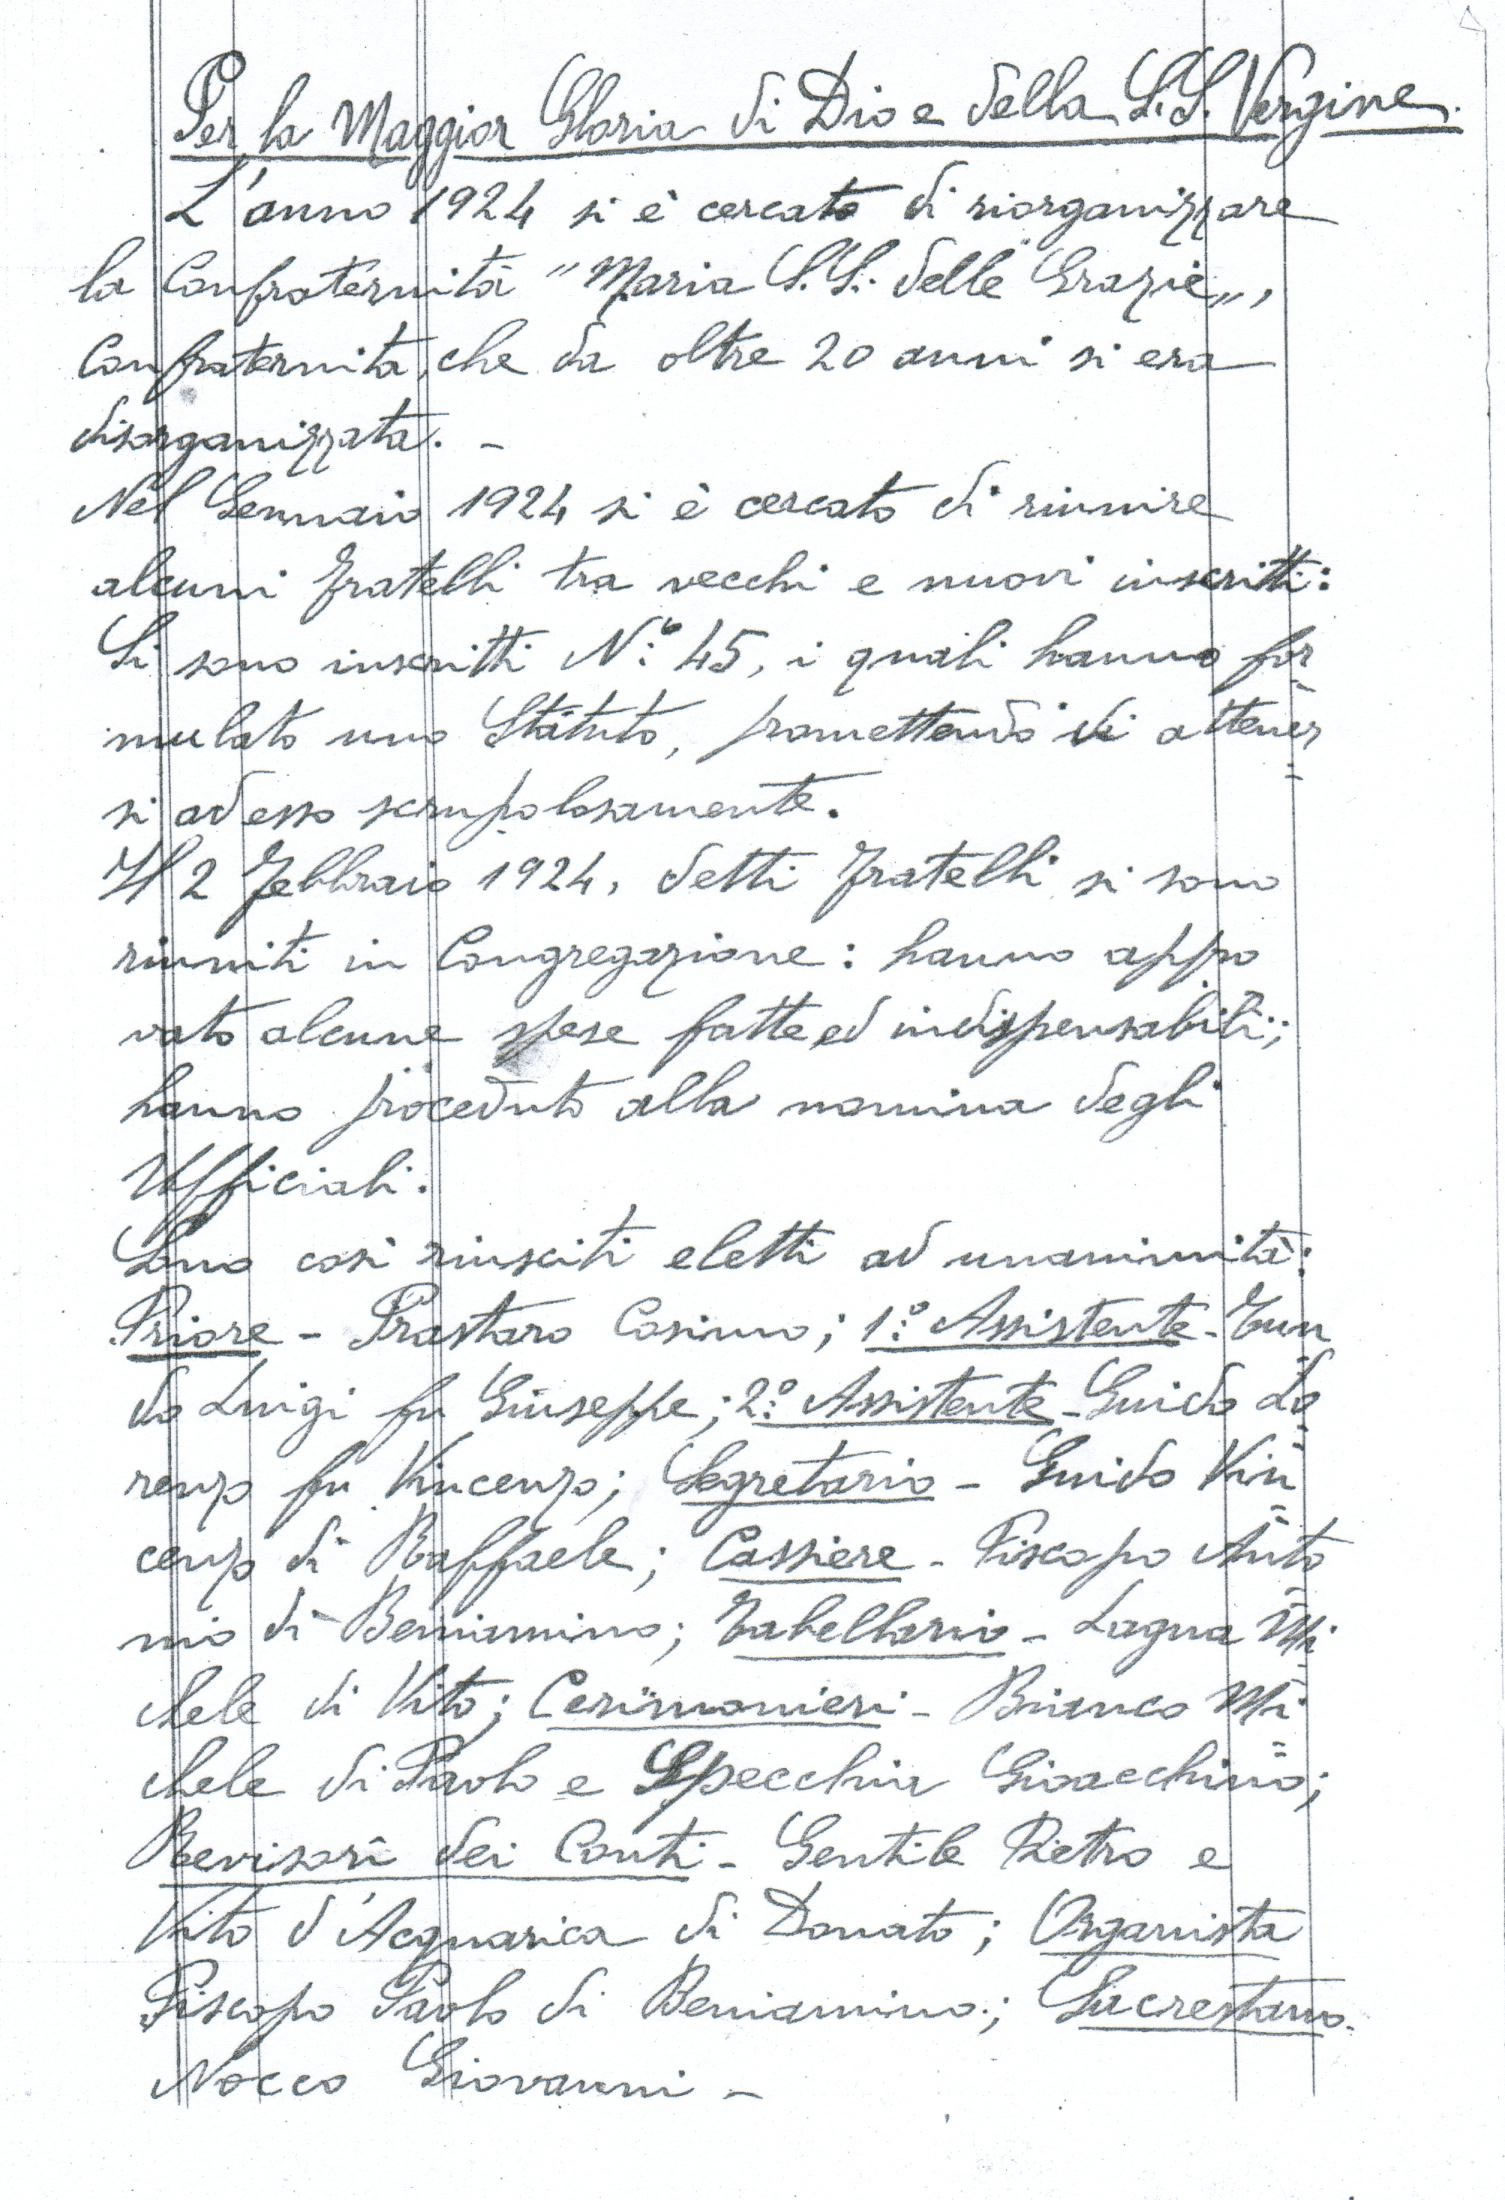 Per la Maggior Gloria di Dio e della S.S. Vergine.
L'anno 1924 si è cercato di riorganizzare
la Confraternità "Maria S.S. delle Grazie",
Confraternita, che da oltre 20 anni si era
disorganizzata. -
Nel Gennaio 1924 si è cercato di riunire
alcuni Fratelli tra vecchi e nuovi inscritti:
Si sono inscritti N.º 45, i quali hanno for
mulato uno Statuto, promettendo di attener
si ad esso scrupolosamente.
Il 2 Febbraio 1924, detti Fratelli si sono
riuniti in Congregazione: hanno appro
vato alcune spese fatte ed indispensabili;
hanno proceduto alla nomina degli
Ufficiali.
Sono così riusciti eletti ad unanimità:
Priore - Prastaro Cosimo; 1.º Assistente - Tun
do Luigi fu Giuseppe; 2.º Assistente - Guido Lo
renzo fu Vincenzo; Segretario - Guido Vin
cenzo di Raffaele; Cassiere - Piscopo Anto
nio di Beniamino; Tabellario - Lagna Mi
chele di Vito; Cerimonieri - Bianco Mi
chele di Paolo e Specchia Gioacchino;
Revisori dei Conti - Gentile Pietro e
Vito d'Acquarica di Donato; Organista
Piscopo Paolo di Beniamino; Sacrestano -
Nocco Giovanni -